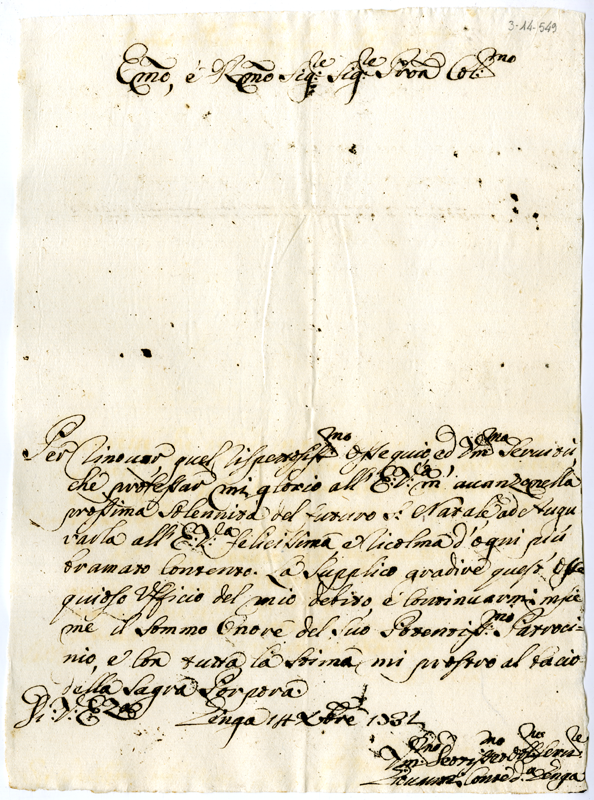 3-14-549
Emo, e Rmo Sig:re Sig:re Pron Col:mo
Per rinovar quel rispettosiss:mo Ossequio, ed Um:ma Servitù,
che professar mi glorio all' E: V:ra m' avanzo nella
prossima Solennità del futuro S: Natale ad Augu
rarla all' E: V:ra felicissima, e ricolma d' ogni più
bramato contento. La supplico gradire quest' osse
quioso Ufficio del mio debito, e continuarmi insie
me il sommo Onore del Suo Potentiss:mo Patroci=
nio, e con tutta la stima mi prostro al bacio
della Sagra Porpora.
Di V: E:za
14 Xbre